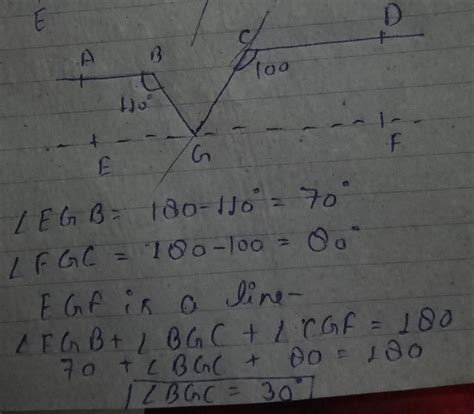 E
A B C D
110° 100
E G F
∠EGB = 180-110° = 70°
∠FGC = 180-100 = 80°
EGF is a line-
∠EGB + ∠BGC + ∠CGF = 180
70 + ∠BGC + 80 = 180
∠BGC = 30°